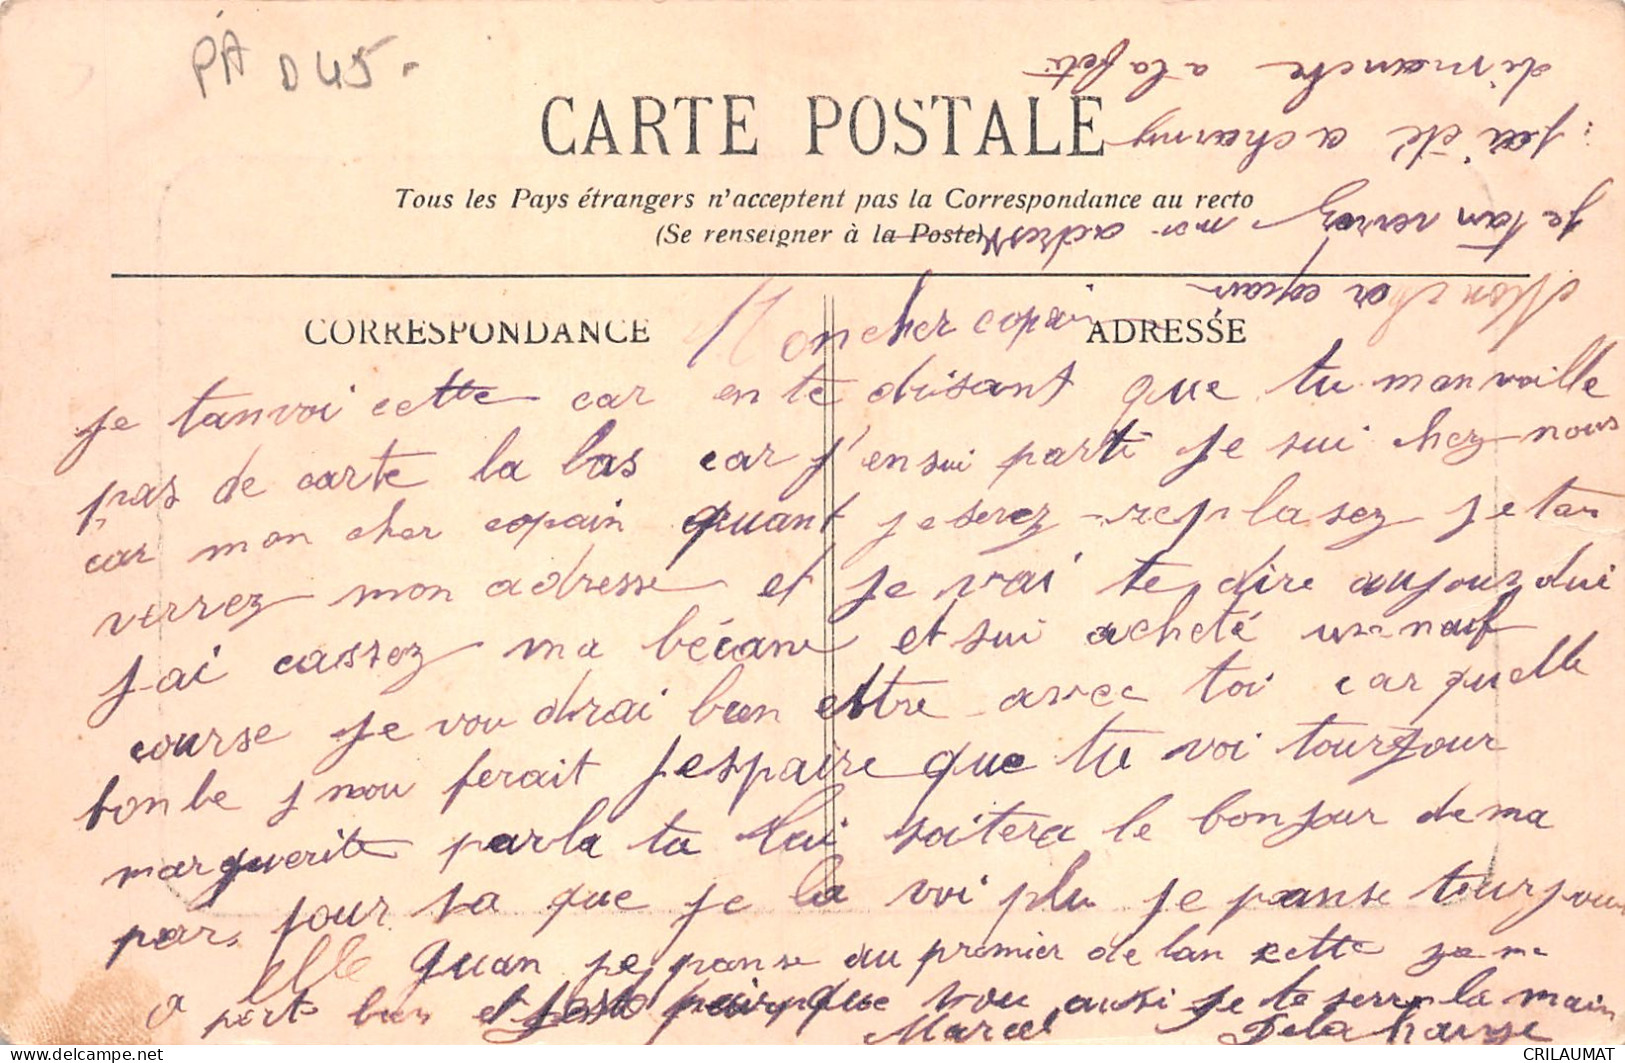 PA D45.
CARTE POSTALE
Tous les Pays étrangers n'acceptent pas la Correspondance au recto
(Se renseigner à la Poste)
CORRESPONDANCE
ADRESSE
Mon cher copain
je tanvoi cette car en te disant que tu manvoille
pas de carte la bas car j'en sui parti je sui chez nous
car mon cher copain quant je serez replasez je tan
verrez mon adresse et je vai te dire aujourdui
j ai cassez ma bécane et sui acheté une neuf
course je voudrai bien ettre avec toi car quelle
bonbe j nou ferait j espaire que tu voi tourjour
marguerite parla tu lui soitera le bonjour de ma
par pour sa que je la voi plu je panse tourjour
a elle quan je panse au premier de lan cette
porte bien et que vou aussi je te serre la main
Marcel Delahaye
Mon cher copain
je tan verrez mon adresse
j ai été a charny
dimanche a la fete
CRILAUMAT